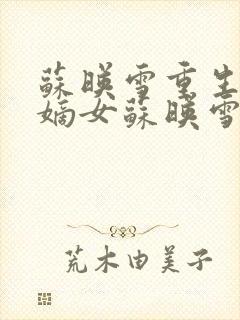 蘇暎雪重生
嫡女蘇暎雪
荒木由美子